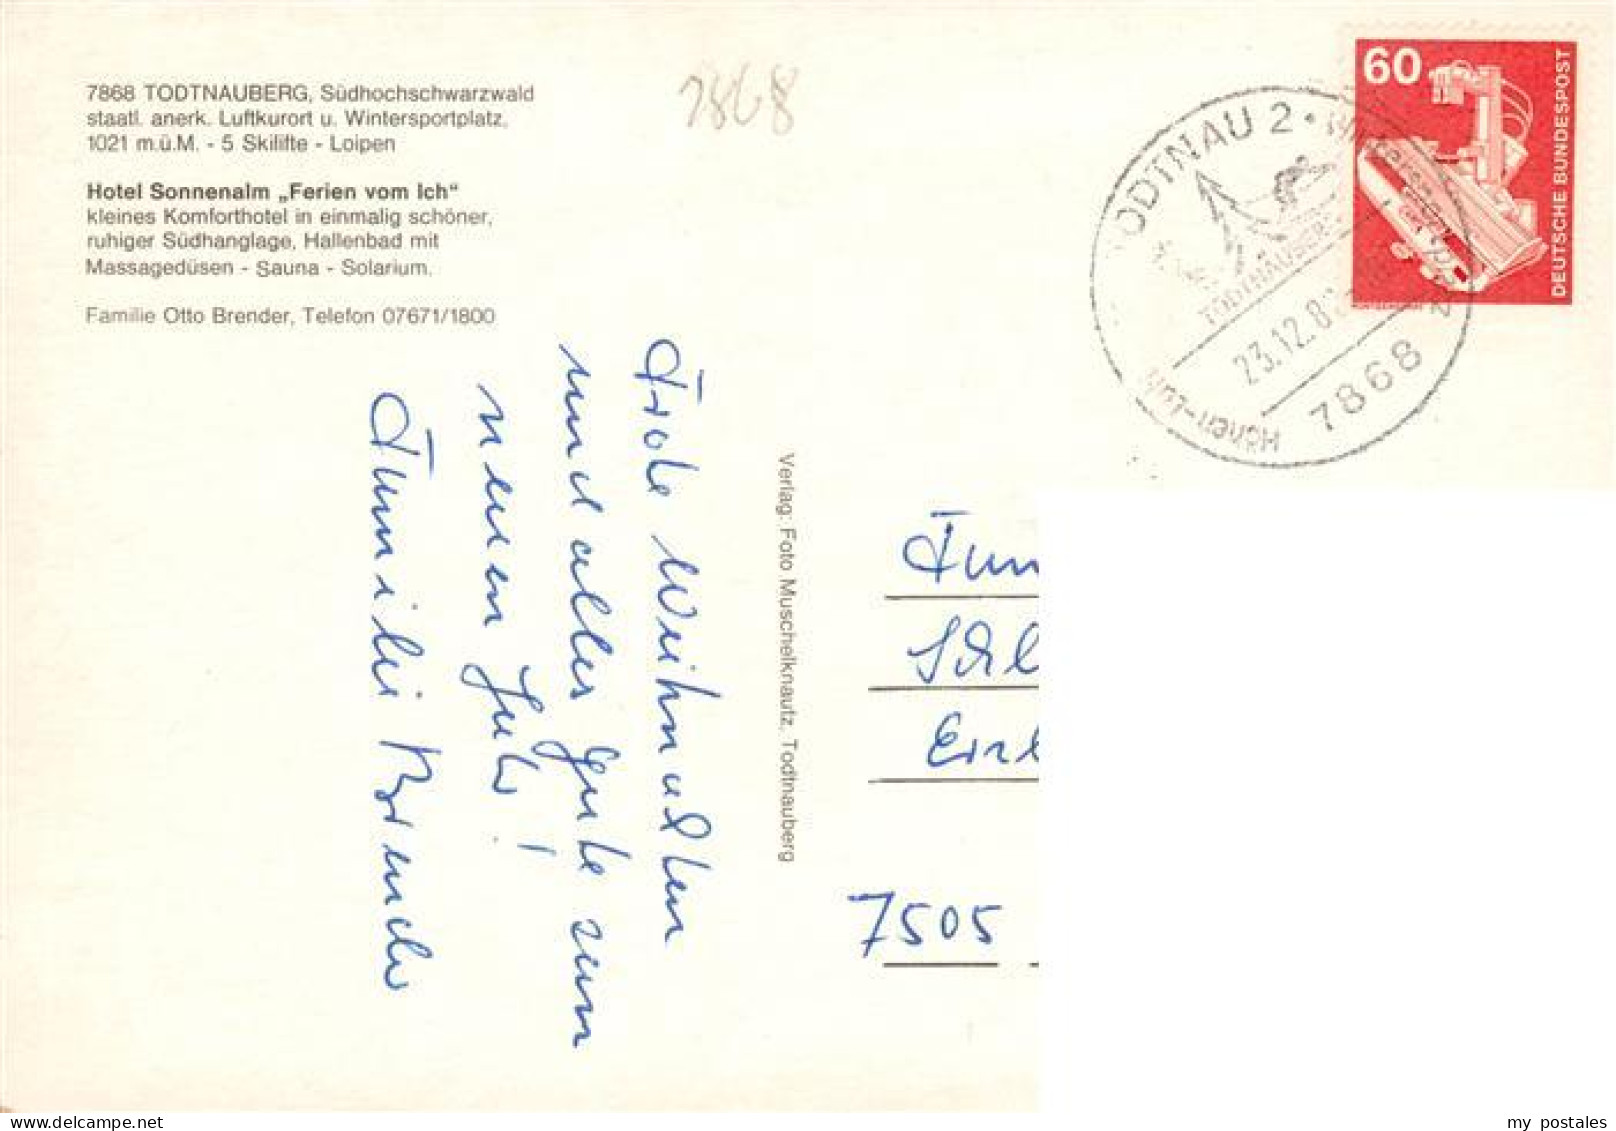 7868 TODTNAUBERG, Südhochschwarzwald
staatl. anerk. Luftkurort u. Wintersportplatz,
1021 m.ü.M. - 5 Skilifte - Loipen
Hotel Sonnenalm „Ferien vom Ich"
kleines Komforthotel in einmalig schöner,
ruhiger Südhanglage, Hallenbad mit
Massagedüsen - Sauna - Solarium.
Familie Otto Brender, Telefon 07671/1800
7868
Frohe Weihnachten
und alles Gute zum
neuen Jahr!
Familie Brender
Verlag: Foto Muschelknautz, Todtnauberg
TODTNAU 2 · Wintersportplatz
TODTNAUBERG
23.12.8
7868
Höhen-Luft
60
DEUTSCHE BUNDESPOST
Fam
Schl
7505
my postales